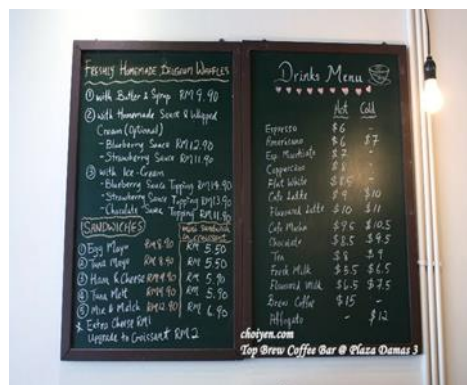 FRESHLY HOMEMADE BELGIUM WAFFLES
① with Butter & Syrup RM 9.90
② with Homemade Sauce & Whipped
Cream (Optional)
- Blueberry Sauce RM12.90
- Strawberry Sauce RM11.90
③ with Ice-Cream
- Blueberry Sauce Topping RM14.90
- Strawberry Sauce Topping RM13.90
- Chocolate Sauce Topping RM11.90
SANDWICHES
① Egg Mayo RM8.90 RM 5.50
② Tuna Mayo RM8.90 RM 5.50
③ Ham & Cheese RM 5.90
④ Tuna Melt RM 5.90
⑤ Mix & Match RM12.90 RM 6.90
* Extra Cheese RM1
Upgrade to Croissant RM2
Drinks Menu
Hot Cold
Espresso $6 -
Americano $6 $7
Esp. Macchiato $7 -
Cappuccino $8 -
Flat White $8.5 -
Cafe Latte $9 $10
Flavoured Latte $10 $11
Cafe Mocha $9.5 $10.5
Chocolate $8.5 $9.5
Tea $8 $9
Fresh Milk $5.5 $6.5
Flavoured Milk $6.5 $7.5
Brew Coffee $15 -
Affogato - $12
choiyen.com
Top Brew Coffee Bar @ Plaza Damas 3